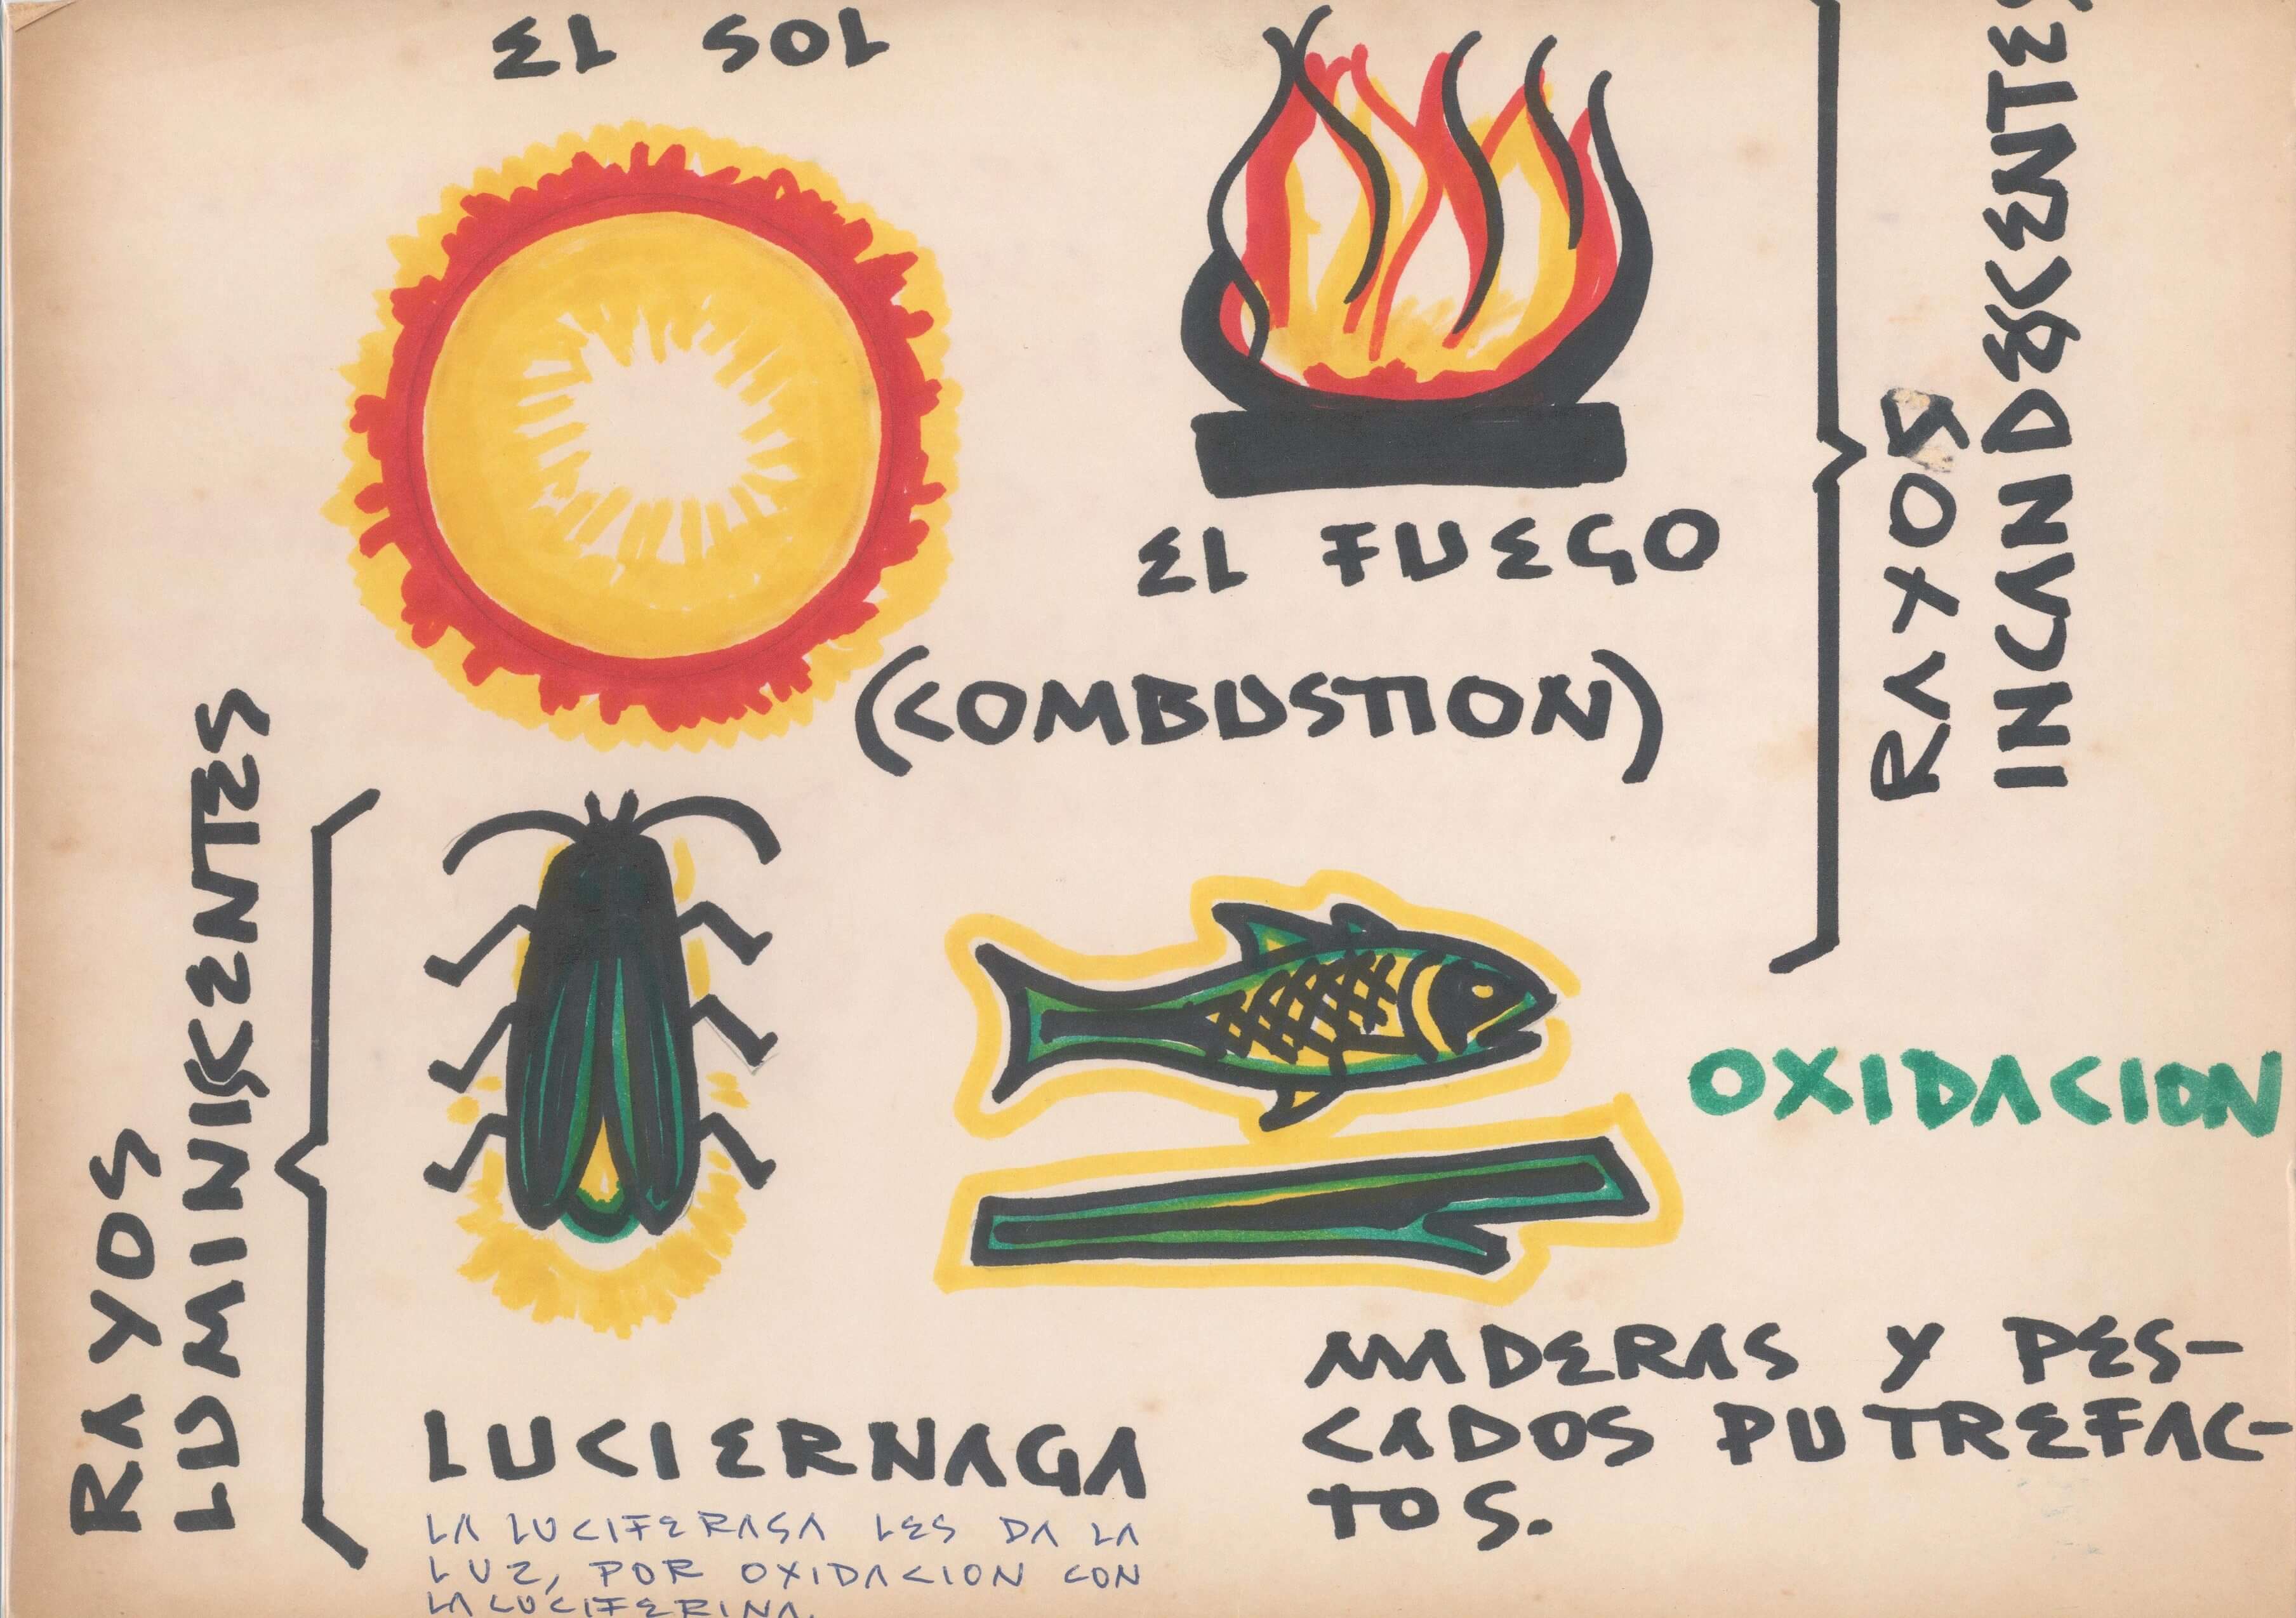 EL SOL
EL FUEGO
(COMBUSTION)
RAYOS
INCANDESCENTES
RAYOS
LUMINISCENTES
OXIDACION
LUCIERNAGA
LA LUCIFERASA LES DA LA
LUZ, POR OXIDACION CON
LA LUCIFERINA.
MADERAS Y PES-
CADOS PUTREFAC-
TOS.